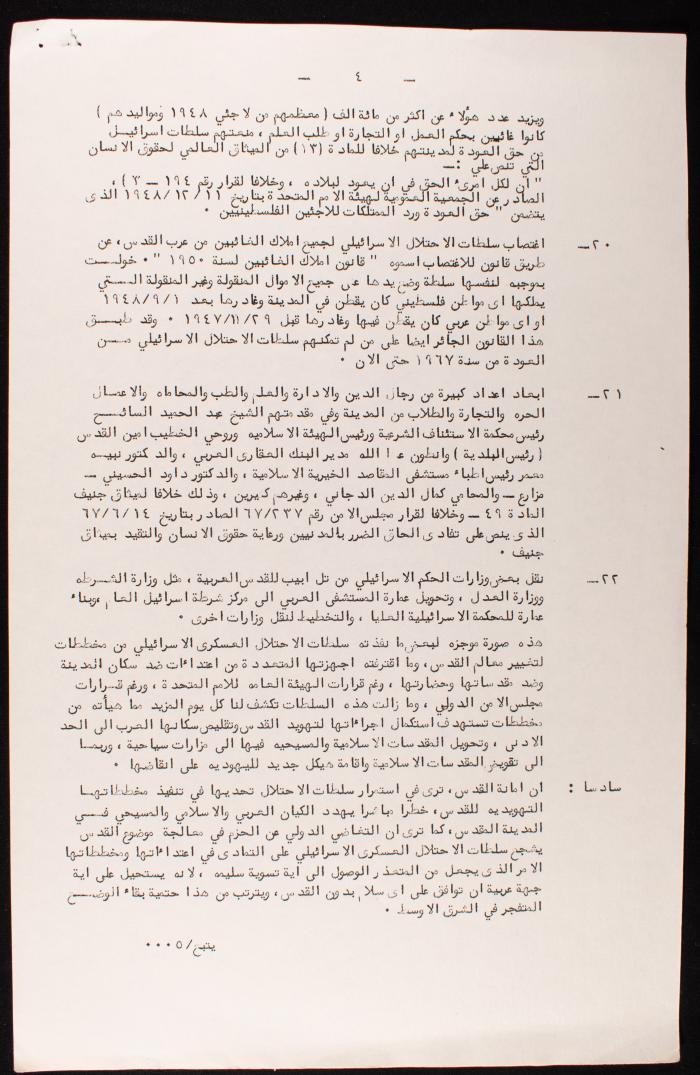 — ٤ —
ويزيد عدد هؤلاء عن اكثر من مائة الف ( معظمهم من لاجئي ١٩٤٨ ومواليدهم )
كانوا غائبين بحكم العمل او التجارة او طلب العلم ، منعتهم سلطات اسرائيل
من حق العودة لمدينتهم خلافا للمادة (١٣) من الميثاق العالمي لحقوق الانسان
التي تنص على :—
" ان لكل امرىء الحق في ان يعود لبلاده ، وخلافا لقرار رقم ١٩٤ — ٣ ) ،
الصادر عن الجمعية العمومية لهيئة الامم المتحدة بتاريخ ١٩٤٨/١٢/١١ الذى
يتضمن " حق العودة ورد الممتلكات للاجئين الفلسطينيين ٠
٢٠— اغتصاب سلطات الاحتلال الاسرائيلي لجميع املاك الغائبين من عرب القدس، عن
طريق قانون للاغتصاب اسموه " قانون املاك الغائبين لسنة ١٩٥٠ "٠ خولت
بموجبه لنفسها سلطة وضع يدها على جميع الاموال المنقولة وغير المنقولة التي
يملكها اى مواطن فلسطيني كان يقطن في المدينة وغادرها بعد ١٩٤٨/٩/١
او اى مواطن عربي كان يقطن فيها وغادرها قبل ١٩٤٧/١١/٢٩ ٠ وقد طبق
هذا القانون الجائر ايضا على من لم تمكنهم سلطات الاحتلال الاسرائيلي من
العودة من سنة ١٩٦٧ حتى الان ٠
٢١— ابعاد اعداد كبيرة من رجال الدين والادارة والعلم والطب والمحاماه والاعمال
الحره والتجارة والطلاب من المدينة وفي مقدمتهم الشيخ عبد الحميد السائح
رئيس محكمة الاستئناف الشرعية ورئيس الهيئة الاسلاميه وروحي الخطيب امين القدس
( رئيس البلدية ) وانطون عطا الله مدير البنك العقارى العربي ، والدكتور نبيه
معمر رئيس اطباء مستشفى المقاصد الخيرية الاسلامية ، والدكتور داود الحسيني —
مزارع — والمحامي كمال الدين الدجاني ، وغيرهم كثيرين ، وذلك خلافا لميثاق جنيف
المادة ٤٩ — وخلافا لقرار مجلس الامن رقم ٦٧/٢٣٧ الصادر بتاريخ ٦٧/٦/١٤
الذى ينص على تفادى الحاق الضرر بالمدنيين ورعاية حقوق الانسان والتقيد بميثاق
جنيف ٠
٢٢— نقل بعض وزارات الحكم الاسرائيلي من تل ابيب للقدس العربية ، مثل وزارة الشرطه
ووزارة العدل ، وتحويل عمارة المستشفى العربي الى مركز شرطة اسرائيل العام ،وبناء
عمارة للمحكمة الاسرائيلية العليا ، والتخطيط لنقل وزارات اخرى ٠
هذه صورة موجزه لبعض ما نفذته سلطات الاحتلال العسكرى الاسرائيلي من مخططات
لتغيير معالم القدس، وما اقترفته اجهزتها المتعددة من اعتداءات ضد سكان المدينة
وضد مقدساتها وحضارتها ، رغم قرارات الهيئة العامه للامم المتحدة ، ورغم قرارات
مجلس الامن الدولي ، وما زالت هذه السلطات تكشف لنا كل يوم المزيد مما هيأته من
مخططات تستهدف استكمال اجراءاتها لتهويد القدس وتقليص سكانها العرب الى الحد
الادنى ، وتحويل المقدسات الاسلامية والمسيحيه فيها الى مزارات سياحية ، وربما
الى تقويض المقدسات الاسلامية واقامة هيكل جديد لليهوديه على انقاضها ٠
سادسا : ان امانة القدس، ترى في استمرار سلطات الاحتلال تحديها في تنفيذ مخططاتها
التهويديه للقدس، خطرا مباشرا يهدد الكيان العربي والاسلامي والمسيحي في
المدينة المقدس، كما ترى ان التغاضي الدولي عن الحزم في معالجة موضوع القدس
يشجع سلطات الاحتلال العسكرى الاسرائيلي على التمادى في اعتداءاتها ومخططاتها
الامر الذى يجعل من المتعذر الوصول الى اية تسوية سليمه ، لانه يستحيل على اية
جهة عربية ان توافق على اى سلام بدون القدس، ويترتب من هذا حتمية بقاء الوضع
المتفجر في الشرق الاوسط ٠
يتبع/٥ ٠٠٠